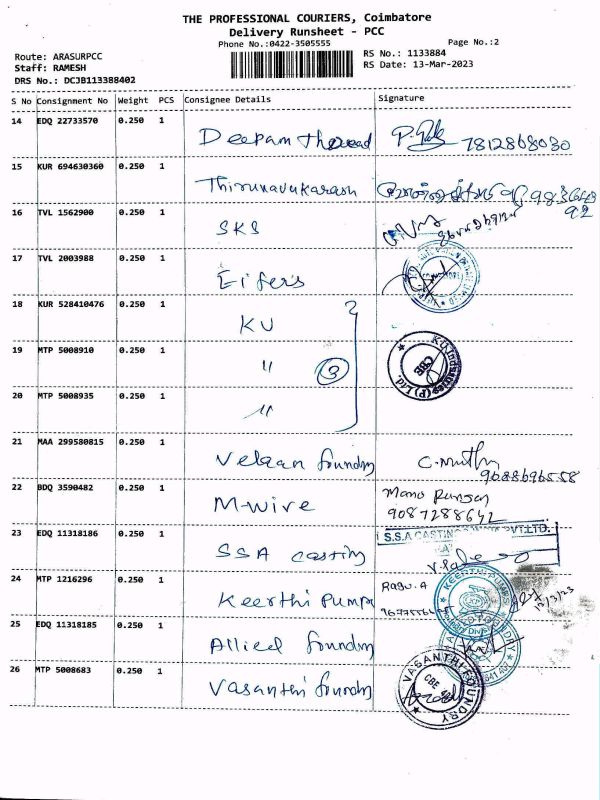 THE PROFESSIONAL COURIERS, Coimbatore
Delivery Runsheet - PCC
Phone No.:0422-3505555
Page No.:2
Route: ARASURPCC
Staff: RAMESH
DRS No.: DCJB113388402
RS No.: 1133884
RS Date: 13-Mar-2023
S No Consignment No Weight PCS Consignee Details Signature
14 EDQ 22733570 0.250 1 Deepam Thread 7812868030
15 KUR 694630360 0.250 1 Thirunavukarasu
16 TVL 1562900 0.250 1 SKS
17 TVL 2003988 0.250 1 Eifers
18 KUR 528410476 0.250 1 KU
19 MTP 5008910 0.250 1 " 3
K.U.Industries (P) Ltd. CBE
20 MTP 5008935 0.250 1 "
21 MAA 299580815 0.250 1 Velaan foundry C.Muthu
9688696558
22 BDQ 3590482 0.250 1 M-wire Mano Ranjan
9087288642
23 EDQ 11318186 0.250 1 SSA casting
S.S.A CASTINGS PVT.LTD.
24 MTP 1216296 0.250 1 Keerthi Pumps Ragu.A
KEERTHI PUMPS
25 EDQ 11318185 0.250 1 Allied foundry
26 MTP 5008683 0.250 1 Vasanthi foundry
VASANTHI FOUNDRY CBE